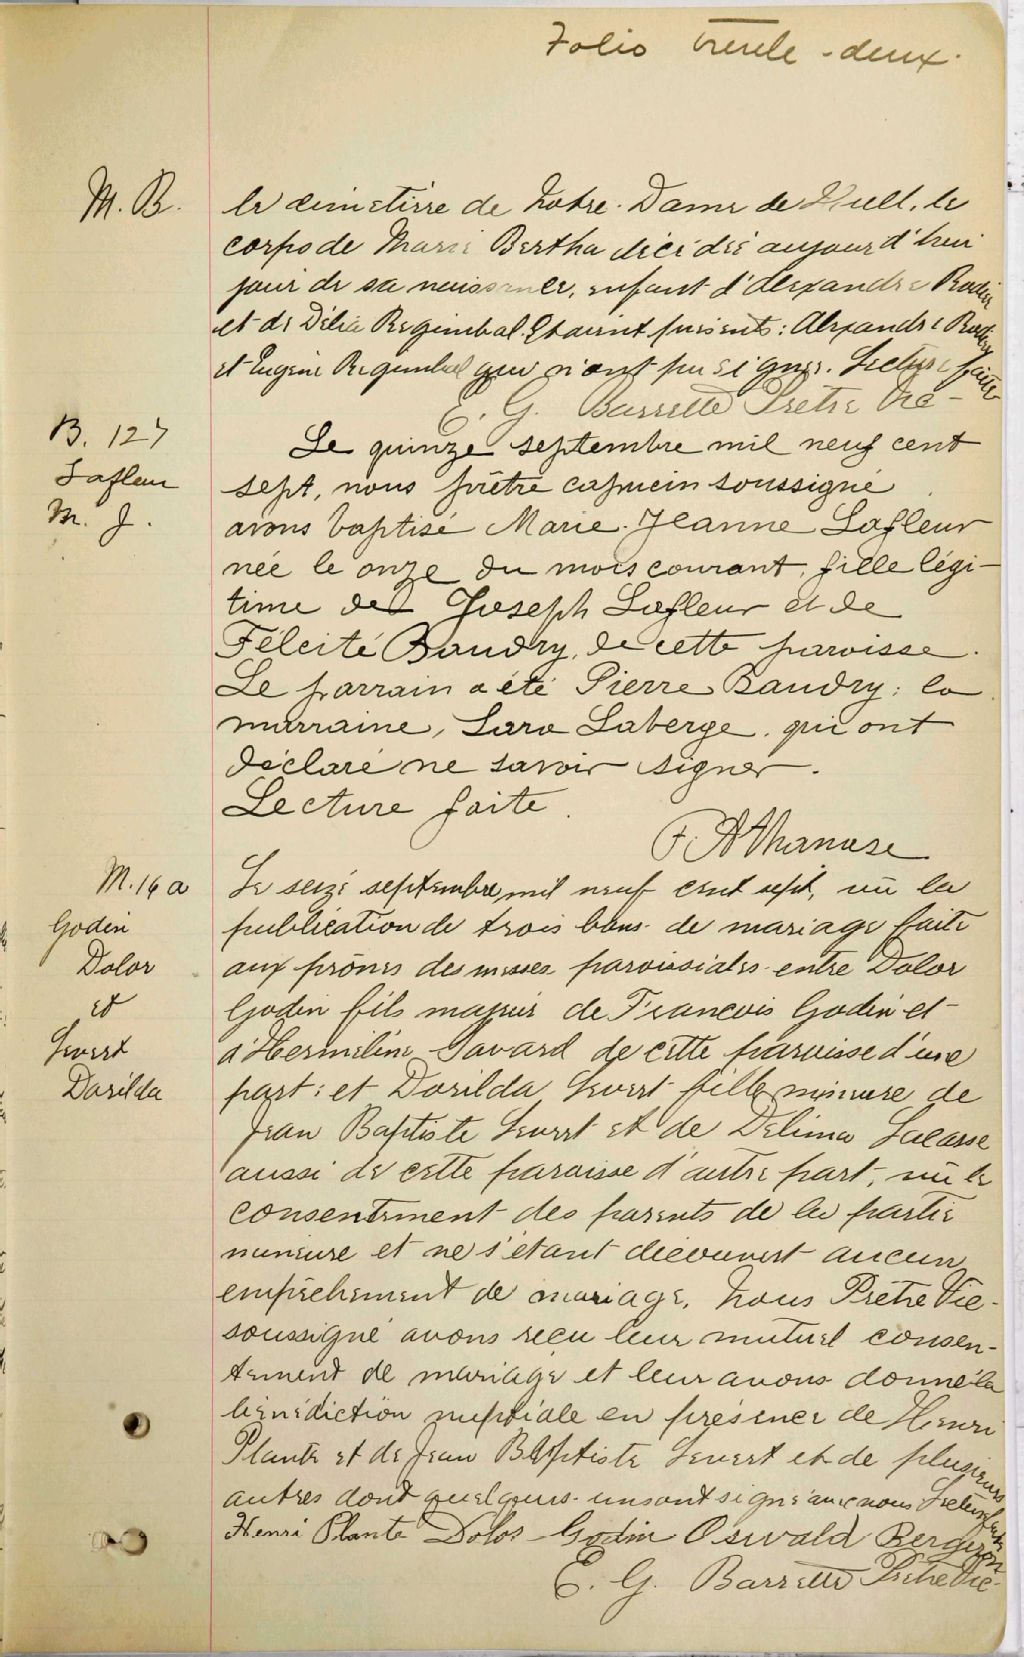 Folio trente-deux.
M. B.
le cimetière de Notre-Dame de Hull, le
corps de Marie Bertha décédée aujourd'hui
jour de sa naissance, enfant d'Alexandre
et de Délia Regimbal. Etaient présents: Alexandre
et Eugène Regimbal qui n'ont pu signer. Lecture faite
E. G. Barrette Prêtre Vic-
B. 127
Lafleur
M. J.
Le quinze septembre mil neuf cent
sept, nous prêtre capucin soussigné
avons baptisé Marie-Jeanne Lafleur
née le onze du mois courant, fille légi-
time de Joseph Lafleur et de
Félcité Baudry, de cette paroisse.
Le parrain a été Pierre Baudry; la
marraine, Lara Laberge, qui ont
déclaré ne savoir signer.
Lecture faite.
F. Athanase
M. 16 a
Godin
Dolor
et
Levert
Dorilda
Le seize septembre mil neuf cent sept, vû la
publication de trois bans de mariage faite
aux prônes des messes paroissiales entre Dolor
Godin fils majeur de Francois Godin et
d'Hermiline Savard de cette paroisse d'une
part: et Dorilda Levert fille mineure de
Jean Baptiste Levert et de Delima Lacasse
aussi de cette paroisse d'autre part, vû le
consentement des parents de la partie
mineure et ne s'étant découvert aucun
empêchement de mariage, Nous Prêtre Vic-
soussigné avons reçu leur mutuel consen-
tement de mariage et leur avons donné la
bénédiction nuptiale en présence de Henri
Plante et de Jean Baptiste Levert et de plusieurs
autres dont quelques-uns ont signé avec nous Lecture faite
Henri Plante Dolor Godin Oswald Bergeron
E. G. Barrette Prêtre Vic-